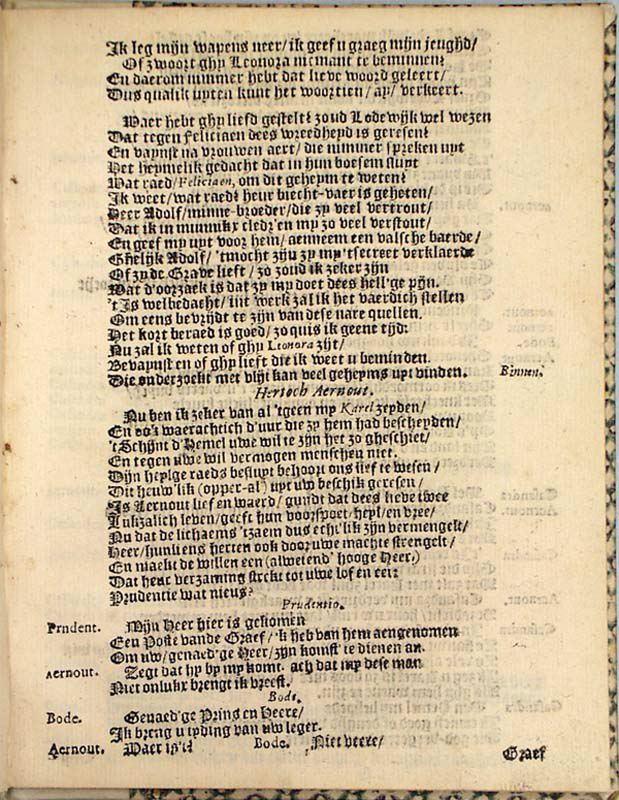 Ik leg mijn wapens neer/ ik geef u graeg mijn jeughd/
Of zwoort ghy Leonora niemant te beminnen?
En daerom nimmer hebt dat lieve woord geleert/
Dus qualik uyten kunt het woortien/ ay/ verkeert.
Waer hebt ghy liefd gestelt? zoud Lodewijk wel wezen
Dat tegen Feliciaen dees wreedheyd is geresen?
En vaynst na vrouwen aert/ die nimmer spreken uyt
Het heymelik gedacht dat in hun boesem sluyt
Wat raed/ Feliciaen, om dit geheym te weten?
Ik weet/ wat raed? heur biecht-vaer is geheten/
Heer Adolf/ minne-broeder/ die zy veel vertrout/
Dat ik in munnikx cleed'ren my zo veel verstout/
En geef my uyt voor hem/ aenneem een valsche baerde/
Ghelijk Adolf/ 'tmocht zijn zy my 'tsecreet verklaerde
Of zy de Grave lieft/ zo zoud ik zeker zijn
Wat d'oorzaek is dat zy my doet dees hell'ge pijn.
't Is welbedacht/ int werk zal ik het vaerdich stellen
Om eens bevrijdt te zijn van dese nare quellen.
Het kort beraed is goed/ zo quis ik geene tijd:
Nu zal ik weten of ghy Leonora zijt/
Bevaynst en of ghy lieft die ik weet u beminden.
Die onderzoekt met vlijt kan veel geheyms uyt vinden. Binnen.
Hertoch Aernout.
Nu ben ik zeker van al 'tgeen my Karel zeyden/
En oo'k waerachtich d'uur die zy hem had bescheyden/
't Schijnt d'Hemel uwe wil te zijn het zo gheschiet/
En tegen uwe wil vermogen menschen niet.
Dijn heylge raeds besluyt behoort ons lief te wesen/
Dit heuw'lik (opper-al) uyt uw beschik geresen/
Is Aernout lief en waerd/ gundt dat dees lieve twee
Lukzalich leven/ geeft hun voorspoet/ heyl/ en vree/
Nu dat de lichaems 'tzaem dus echt'lik zijn vermengelt/
Heer/ hunliens herten ook door uwe machte strengelt/
En maekt de willen een (alwetend' hooge Heer,)
Dat heur verzaming strekt tot uwe lof en eer?
Prudentie wat nieus?
Prudentio.
Prudent. Mijn Heer hier is gekomen
Een Poste vande Graef/ 'k heb van hem aengenomen
Om uw/ genaed'ge Heer/ zijn komst' te dienen an.
Aernout. Zegt dat hy by my komt. ach dat my dese man
Niet onlukx brengt ik vreest.
Bode.
Bode. Genaed'ge Prins en Heere/
Ik breng u tyding van uw leger.
Aernout. Waer is't? Bode. Niet veere/
Graef